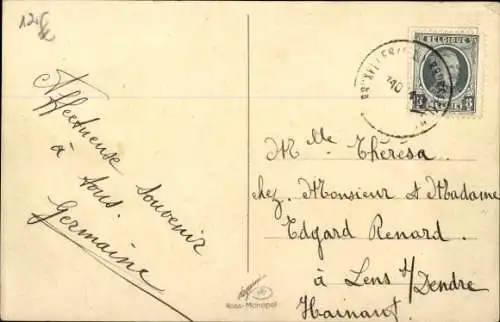 Affectueuse souvenir
à tous.
Germaine
BELGIQUE
Mlle Thérésa
chez Monsieur et Madame
Edgard Renard
à Lens s/Dendre
Hainaut.
Ross-Monopol